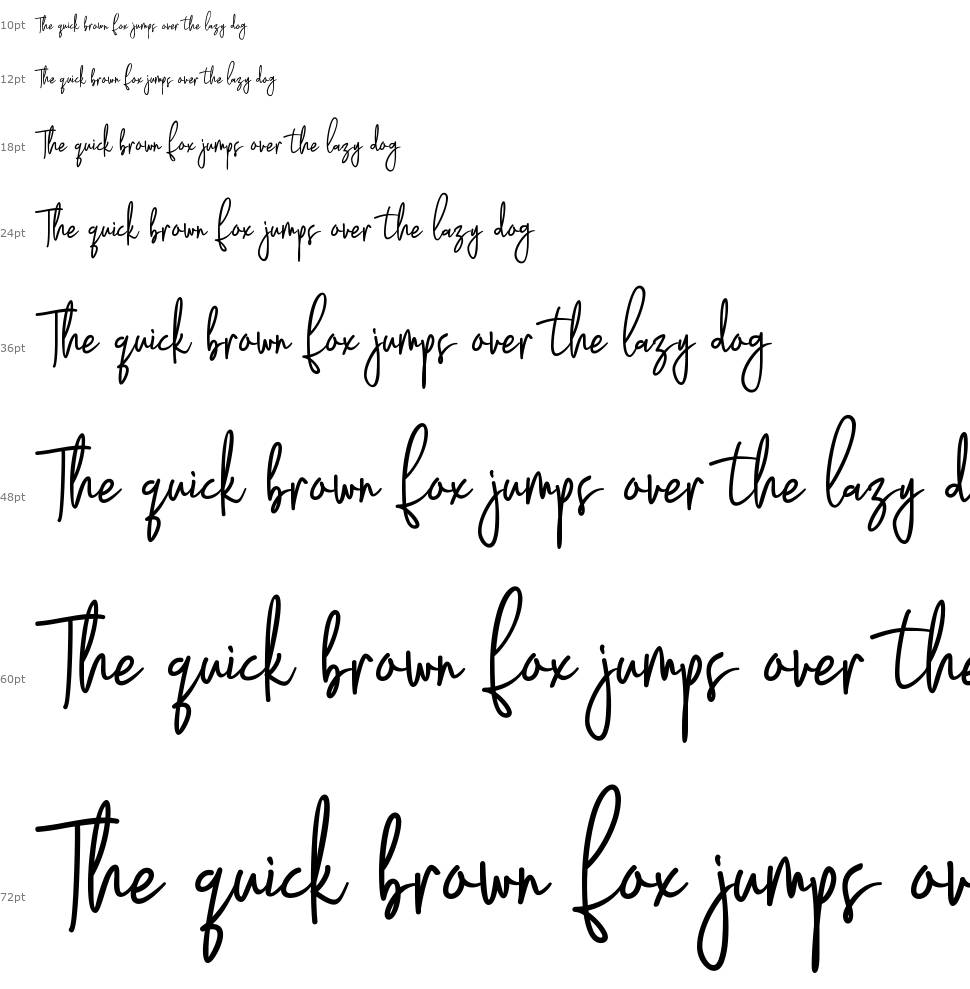 10pt The quick brown fox jumps over the lazy dog
12pt The quick brown fox jumps over the lazy dog
18pt The quick brown fox jumps over the lazy dog
24pt The quick brown fox jumps over the lazy dog
36pt The quick brown fox jumps over the lazy dog
48pt The quick brown fox jumps over the lazy d
60pt The quick brown fox jumps over the
72pt The quick brown fox jumps ov